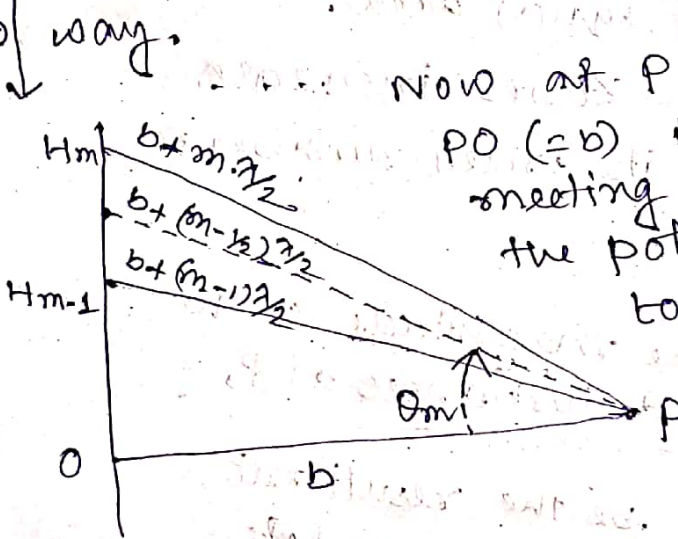 way.
Now at P
PO (= b)
meeting
the
to
Hm
b + m.λ/2
b + (m-1/2) λ/2
b + (m-1) λ/2
Hm-1
θm
P
O
b